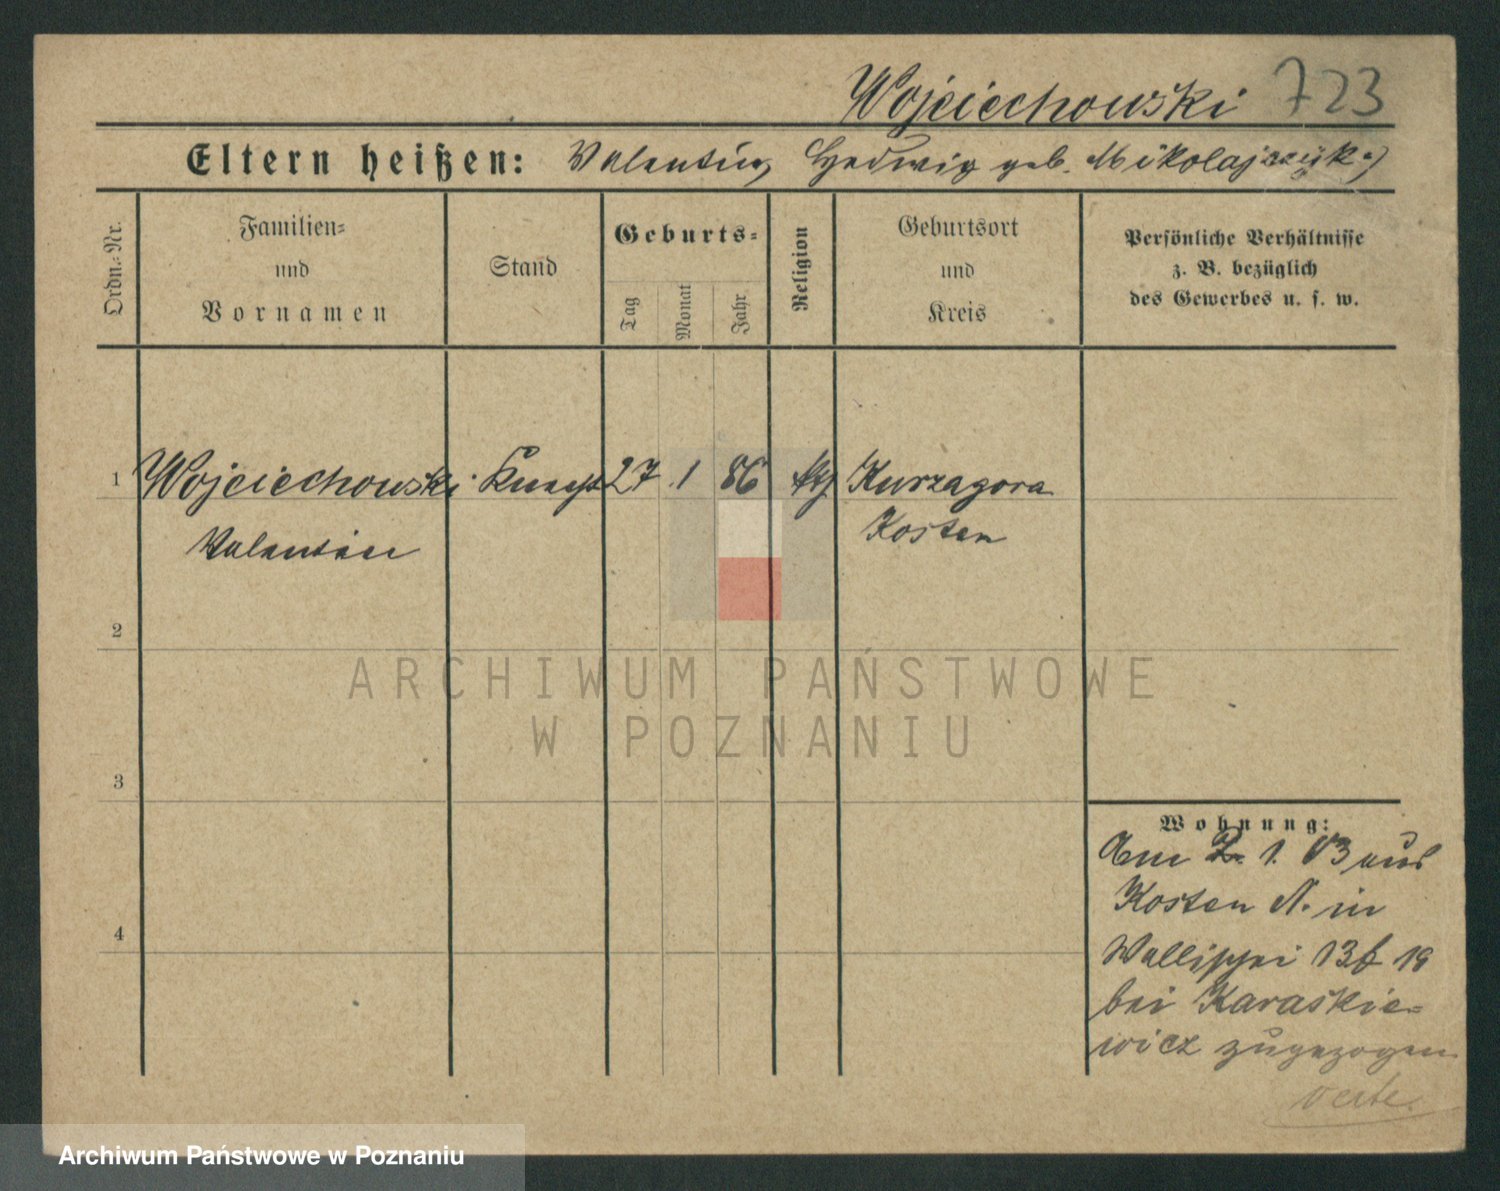 Wojciechowski 723
Eltern heißen: Valentin, Hedwig geb. Mikolajczyk.)
Ordn.-Nr.
Familien-
und
Vornamen
Stand
Geburts-
Tag
Monat
Jahr
Religion
Geburtsort
und
Kreis
Persönliche Verhältnisse
z. B. bezüglich
des Gewerbes u. s. w.
1 Wojciechowski Knecht 27 1 86 Kurzagora
Valentin Kosten
2
ARCHIWUM PAŃSTWOWE
W POZNANIU
3
Wohnung:
Am 2. 1. 13 aus
Kosten N. in
Wallischei 18
bei Karaskie-
wicz zugezogen
verte.
4
Archiwum Państwowe w Poznaniu